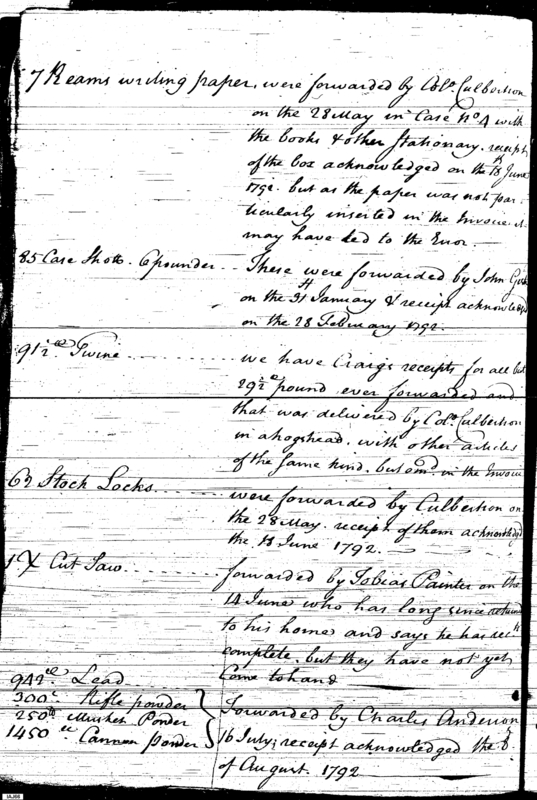 7 Reams writing paper, were forwarded by Colo. Culbertson
on the 28 May in Case No 4 with
the books & other Stationary. receipt
of the box acknowledged on the 18th June
1792. but as the paper was not par-
ticularly inserted in the Invoice it
may have led to the Error. —
85 Case Shots. 6 pounder - - These were forwarded by John
on the 31st January & receipt acknowledged
on the 28 February 1792.
91½ lb Twine - - - - - we have Craigs receipts for all but
29½ lb pound ever forwarded and
that was delivered by Colo. Culbertson
in a hogshead with other articles
of the same kind. but omd. in the Invoice
62 Stock Locks - - - - were forwarded by Culbertson on
the 28 May. receipt of them acknowledged
the June 1792. —
1 X Cut Saw - - - - - forwarded by Tobias Painter on the
14 June who has long since returnd
to his home and says he has rects
complete. but they have not yet
come to hand
942 lb. Lead
300 lb Rifle powder
250 lb Musket Powder
1450 lb Cannon Powder
Forwarded by Charles Anderson
16 July; receipt acknowledged the 8
of August. 1792
IAJ66